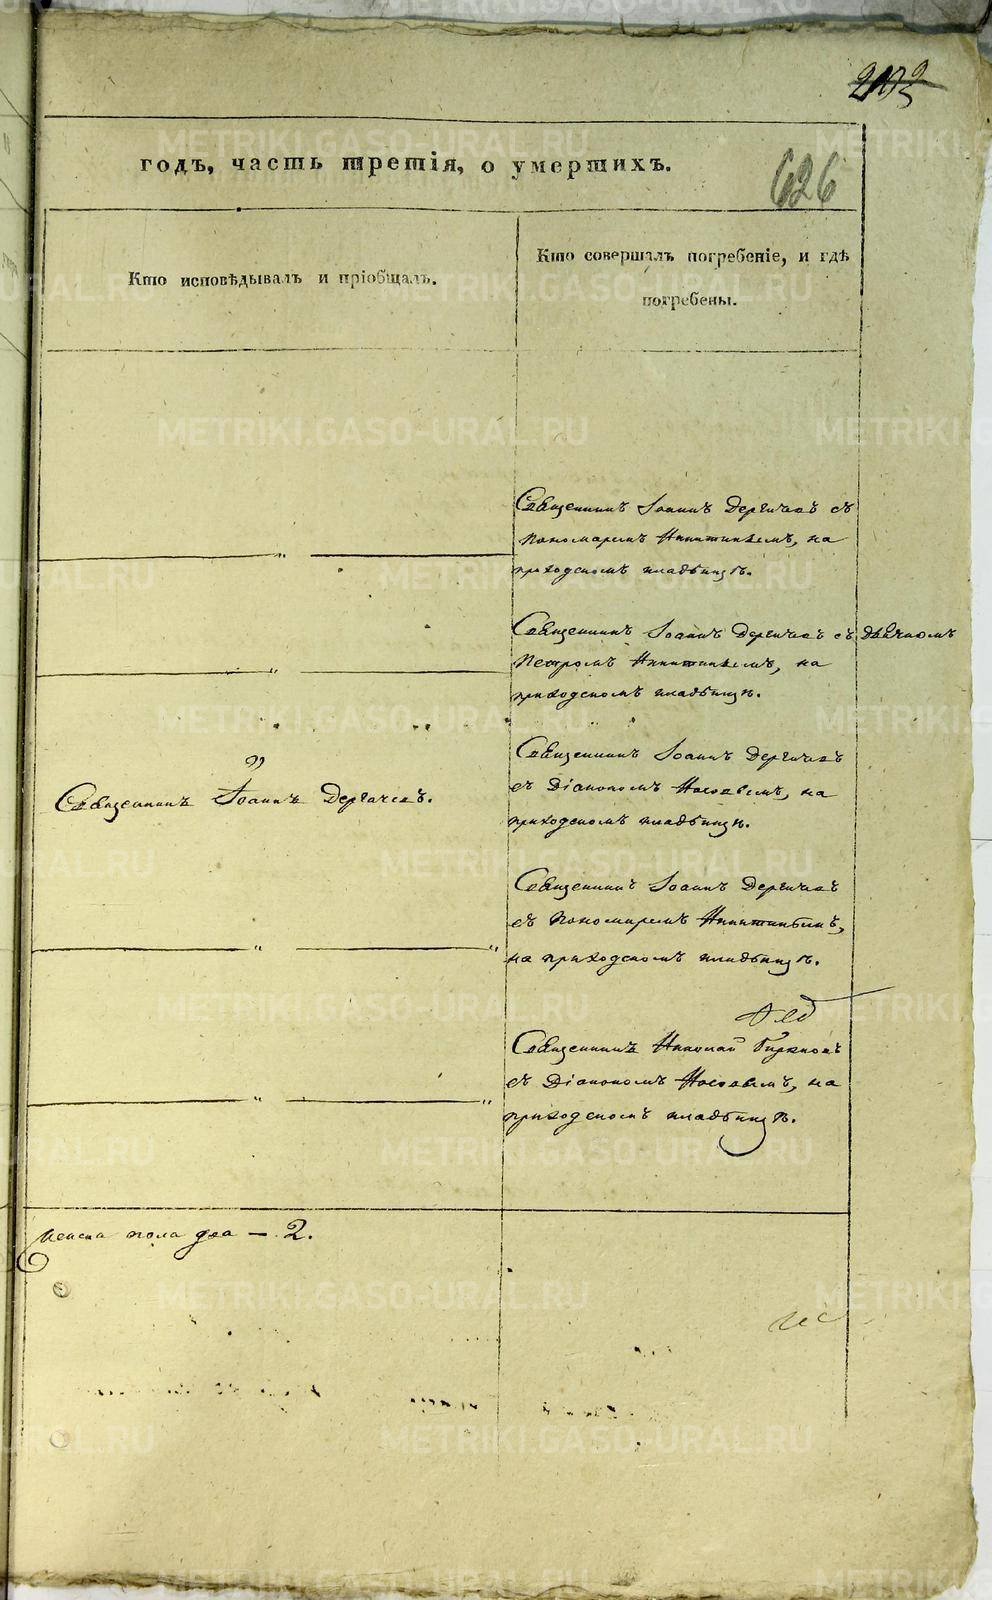 годъ, часть третія, о умершихъ.
626
Кто исповѣдывалъ и пріобщалъ.
Кто совершалъ погребеніе, и гдѣ
погребены.
Священникъ Іоаннъ Дергачевъ съ
пономаремъ Никитинымъ, на
приходскомъ кладбищѣ.
Священникъ Іоаннъ Дергачевъ съ дьячкомъ
Петромъ Никитинымъ, на
приходскомъ кладбищѣ.
Священникъ Іоаннъ Дергачевъ.
Священникъ Іоаннъ Дергачевъ
съ Діакономъ Носовымъ, на
приходскомъ кладбищѣ.
Священникъ Іоаннъ Дергачевъ
съ пономаремъ Никитинымъ,
на приходскомъ кладбищѣ.
Священникъ Николай
съ Діакономъ Носовымъ, на
приходскомъ кладбищѣ.
женска пола два — 2.
METRIKI.GASO-URAL.RU